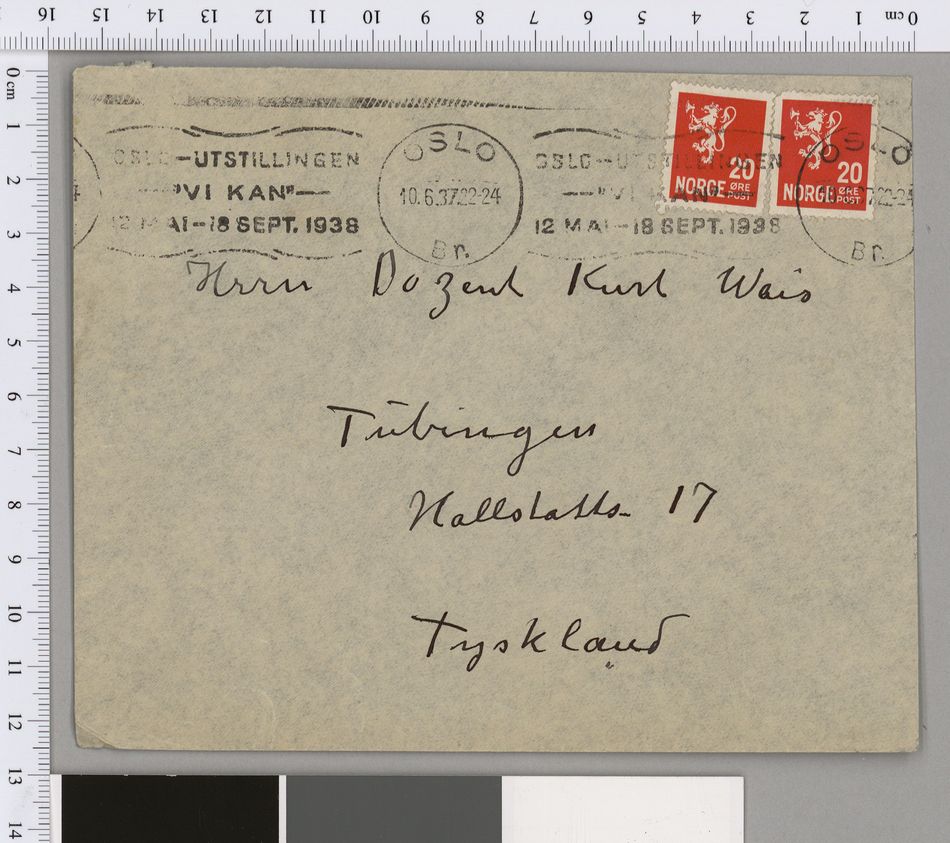 16 15 14 13 12 11 10 9 8 7 6 5 4 3 2 1 0 cm
0 cm
1
2
3
4
5
6
7
8
9
10
11
12
13
14
OSLO-UTSTILLINGEN
"VI KAN"
12 MAI-18 SEPT. 1938
OSLO
10.6.37.22-24
Br.
OSLO-UTSTILLINGEN
"VI KAN"
12 MAI-18 SEPT. 1938
20
NORGE ØRE
POST
20
NORGE ØRE
POST
OSLO
10.6.37.22-24
Br.
Herrn Dozent Kurt Wais
Tübingen
Hallstatts. 17
Tyskland